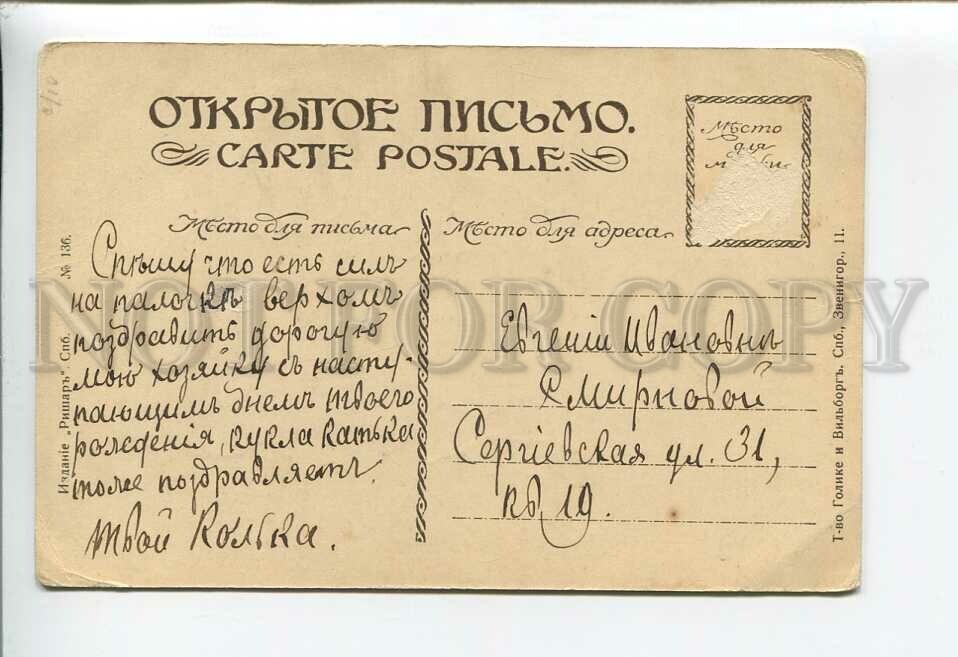 ОТКРЫТОЕ ПИСЬМО.
CARTE POSTALE.
Мѣсто
для
Мѣсто для письма
Мѣсто для адреса
Спѣшу что есть силъ
на палочкѣ верхомъ
поздравить дорогую
мою хозяйку съ насту-
пающимъ днемъ твоего
рожденія, кукла Катька
тоже поздравляетъ.
Твой Колька.
Евгеніи Ивановнѣ
Смирновой
Сергіевская ул. 31,
кв 19.
Изданіе „Ришаръ“. Спб. № 136.
Т-во Голике и Вильборгъ. Спб., Звенигор., 11.
NOT FOR COPY